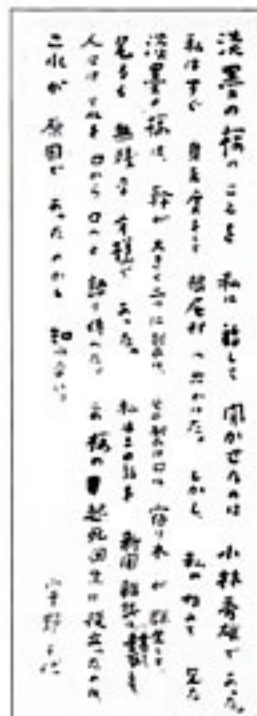 淡墨の桜のことを 私に話して 聞かせたのは 小林秀雄であった。
私はすぐ 身支度をして 根尾村へ出かけた。しかし、私の初めて 見た
淡墨の桜は、幹が 大きく二つに割れ、その割れ目に 寄り木が 群生して
見るも 無残な 有様で あった。 私はこの話を 新聞 雑誌に書き
人々は それを 口から口へと 語り傳へた。この桜の 起死回生に役立ったのは
これが 原因で あったのかも 知れない。
宇野千代